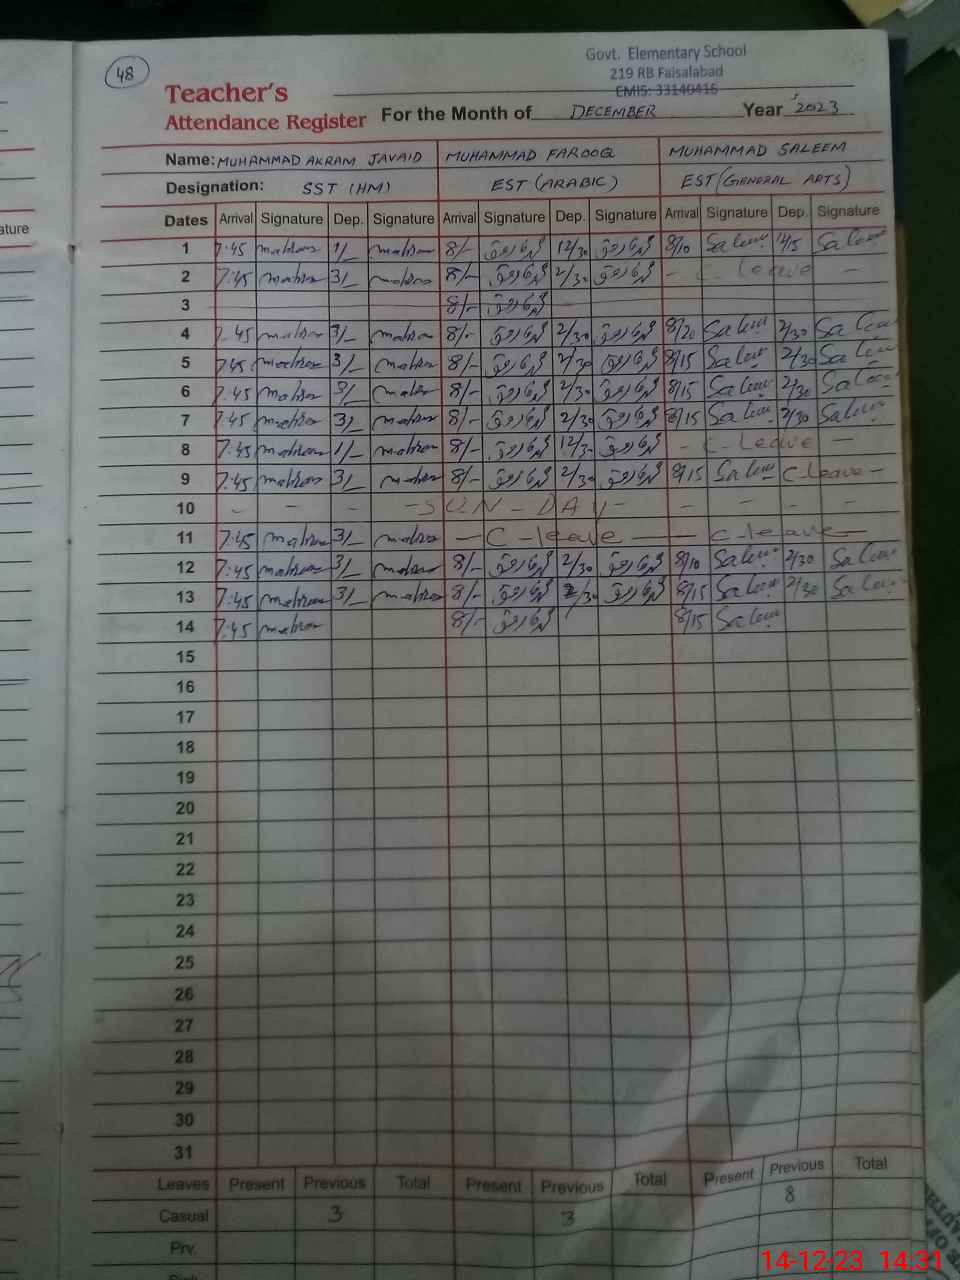 48
Govt. Elementary School
219 RB Faisalabad
EMIS: 33140416
Teacher's
Attendance Register For the Month of DECEMBER Year 2023
Name: MUHAMMAD AKRAM JAVAID MUHAMMAD FAROOQ MUHAMMAD SALEEM
Designation: SST (HM) EST (ARABIC) EST (GENERAL ARTS)
Dates Arrival Signature Dep. Signature Arrival Signature Dep. Signature Arrival Signature Dep. Signature
1 7:45 1/- 8/- فاروق 12/30 فاروق 8/10 Saleem Saleem
2 7:45 3/- 8/- فاروق 2/30 فاروق - C-leave -
3 8/- فاروق
4 7:45 3/- 8/- فاروق 2/30 فاروق 8/20 Saleem 2/30 Saleem
5 7:45 3/- 8/- فاروق 2/30 فاروق 8/15 Saleem 2/30 Saleem
6 7:45 3/- 8/- فاروق 2/30 فاروق 8/15 Saleem 2/30 Saleem
7 7:45 3/- 8/- فاروق 2/30 فاروق 8/15 Saleem 2/30 Saleem
8 7:45 1/- 8/- فاروق 12/30 فاروق - C-Leave -
9 7:45 3/- 8/- فاروق 2/30 فاروق 8/15 Saleem C-leave -
10 - - - - SUN - DAY - - - -
11 7:45 3/- - C-leave - - C-leave -
12 7:45 3/- 8/- فاروق 2/30 فاروق 8/10 Saleem 2/30 Saleem
13 7:45 3/- 8/- فاروق 2/30 فاروق 8/15 Saleem 2/30 Saleem
14 7:45 8/- فاروق 8/15 Saleem
15
16
17
18
19
20
21
22
23
24
25
26
27
28
29
30
31
Leaves Present Previous Total Present Previous Total Present Previous Total
Casual 3 3 8
Prv.
14-12-23 14:31